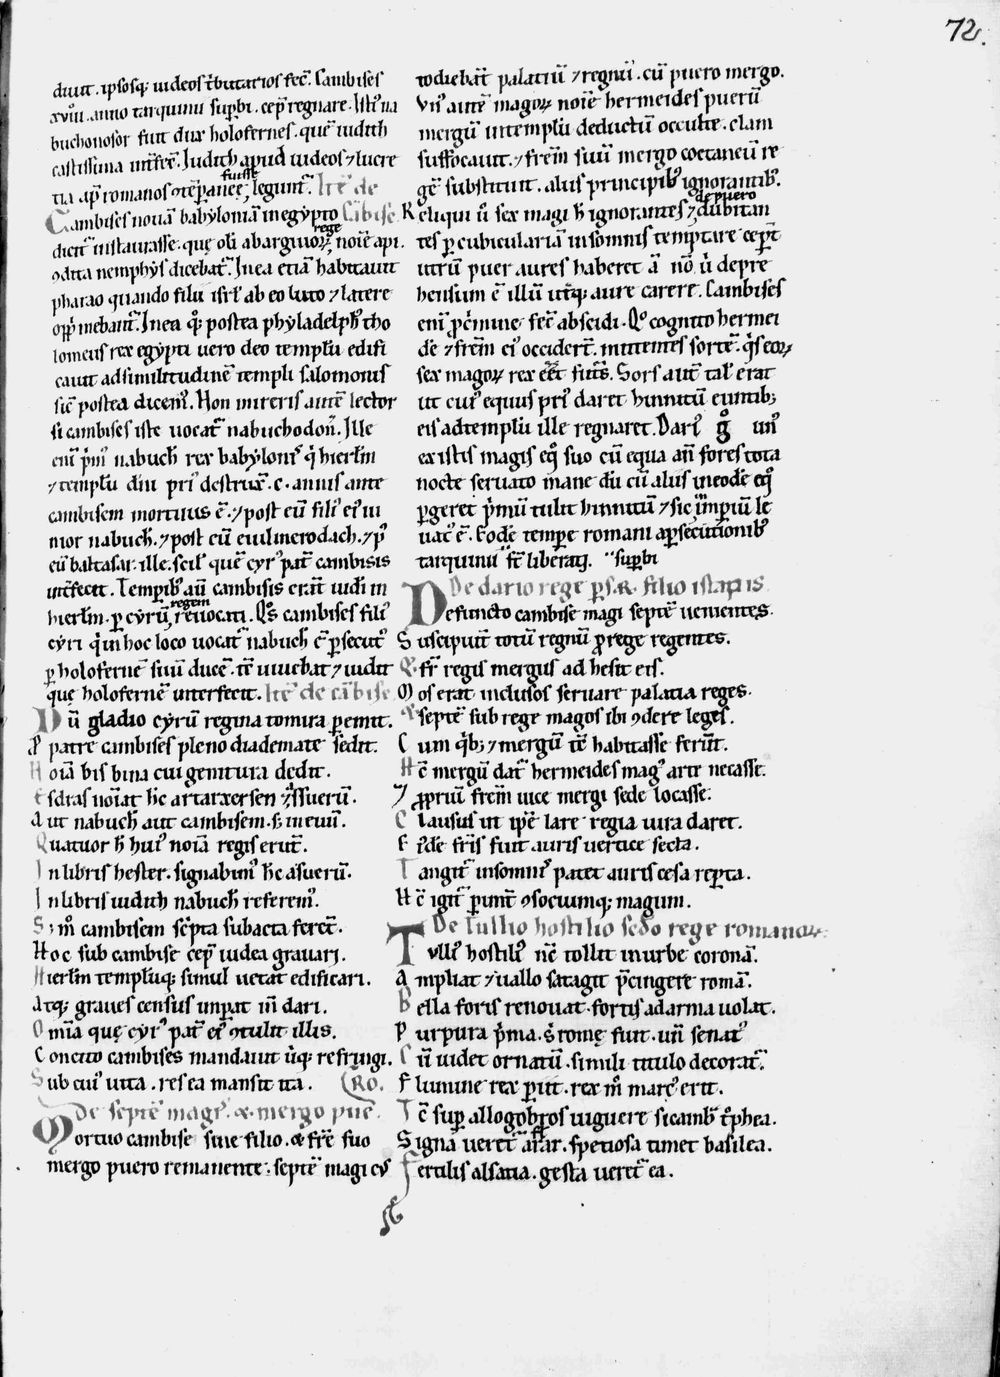 72.
diuit. ipsosq; iudeos t̄butarios fec̄. Cambises
xviii. anno tarquinii sup̄bi. cep̄ regnare. Isti᷒ na
buchonosor fuit dux holofernes. quē iudith
castissima int̄fec̄. Judith apud iudeos ⁊ lucre
tia ap̄ romanos ꝯtēporaneę fuisse legunt᷒. Itē de
Cambises nouā babyloniā in egypto Cābise.
dicit᷒ instaurasse. quę oli ab argiuoꝝ rege noīe api.
ꝯdita nemphys dicebat᷒. In ea etiā habitauit
pharao quando filii isrł ab eo luto ⁊ latere
opp̄mebant᷒. In ea q̄; postea phyladelph᷒ tho
lomeus rex egypti uero deo templū edifi
cauit ad similitudinē templi salomonis
sic̄ postea dicem᷒. Non mireris autē lector
si cambises iste uocat᷒ nabuchodoñ. Ille
eni p̄m᷒ nabuch̄ rex babylonis q̄ hierłm
⁊ templū diu pri᷒ destrux̄. c. annis ante
cambisem mortuus ē. ⁊ post eū fili᷒ ei᷒ iu
nior nabuch̄. ⁊ post eū euilmerodach. ⁊ p᷒
eū baltasar. ille. scil᷒ quē cyr᷒ pat᷒ cambisis
int̄fecit. Temporib᷒ aū cambisis erāt iudi in
hierłm. p cyrū regem reuocati. Q̊s cambises fili᷒
cyri q̄ in hoc loco uocat᷒ nabuch̄ ē p̄secut᷒
p holofernē suū ducē. tē uiuebat ⁊ iudit
quę holofernē interfecit. Itē de cābise
Dū gladio cyrū regina tomira p̄emit.
P patre cambises pleno diademate sedit.
Noīa bis bina cui genitura dedit.
Esdras noīat hē artarxersen ⁊ assuerū.
Aut nabuch̄ aut cambisem. s; in euū.
Quatuor h̄ hui᷒ noīā regis erūt.
In libris hester. signabim᷒ hē asuerū.
In libris iudith nabuch̄ referem᷒.
S; m̊ cambisem sc̄pta subacta ferēt.
Hoc sub cambise cep̄ iudea grauari.
Hierłm templūq; simul uetat edificari.
Atq; graues census imp̄at in̄ dari.
Omīa quę cyr᷒ pat᷒ ei᷒ ꝯtulit illis.
Concito cambises mandauit ūq; refringi.
Sub cui᷒ uita. res ea mansit ita. RO.
De septē magis. & mergo puē.
Mortuo cambise sine filio. & fr̄e suo
mergo puero remanente. septē magi cus
todiebāt palatiū ⁊ regnū. cū puero mergo.
Vn᷒ autē magoꝝ noīe hermeides puerū
mergū in templū deductū occulte. clam
suffocauit. ⁊ fr̄em suū mergo coetaneū re
gē substituit. aliis principib᷒ ignorantib᷒.
Reliqui u᷒ sex magi h̄ ignorantes ⁊ de puero dubitan
tes p cubiculariā in somnis temptare cep̄t
utrū puer aures haberet ā nō. ū depre
hensum ē illū utq; aure carere. Cambises
eni p̄ c̄mine fec̄ abscidi. Qo cognito hermei
de ⁊ fr̄em ei᷒ occiderūt. mittentes sortē. q̄s eoꝝ
sex magoꝝ rex eēt futūs. Sors autē tał erat
ut cui᷒ equus pri᷒ daret hinnitū euntib;
eis ad templū ille regnaret. Dari᷒ g̊ un᷒
ex istis magis eq̊ suo cū equa añ fores tota
nocte seruato mane dū cū aliis in eodē eq̊
p̄geret p̄mū tulit hinnitū ⁊ sic in imp̄iū le
uat᷒ ē. Eodē tempore romani a p̄secutionib᷒
tarquinii s̄t liberati. sup̄bi
De dario rege p̄sar. filio istapis
Defuncto cambise magi septē uenientes.
Suscipiunt totū regnū p̄ rege regentes.
Q. fr̄ regis mergus ad hesit eis.
Mos erat inclusos seruare palatia reges.
Et septē sub rege magos ibi ꝯdere leges.
Cum q̄b; ⁊ mergū tē habitasse ferūt.
Hē mergū dat᷒ hermeides mag᷒ arte necasse.
⁊ p̄priū fr̄em uice mergi sede locasse.
Clausus ut ip̄e lare regia iura daret.
Fr̄de fr̄is fuit auris uertice secta.
Tangit᷒ in somnis patet auris cesa rep̄ta.
Hē igit᷒ p̄imūt ꝯsociumq; magum.
De Tullio hostilio scd̄o rege romanoꝝ.
Tulli᷒ hostili᷒ nē tollit in urbe coronā.
Ampliat ⁊ uallo satagit p̄cingere romā.
Bella foris renouat. fortis ad arma uolat.
Purpura p̄ma. s; rome fuit. un̄ senat᷒
Cū uidet ornatū. simili titulo decorat᷒.
Flumine rex p̄iit. rex m̊ marc᷒ erit.
Tē sup̄ allogobros uiguere sicamb̄ t̊phea.
Signa uerēt᷒ arar. spetiosa timet basilea.
Fertilis alsatia. gesta uerēt᷒ ea.